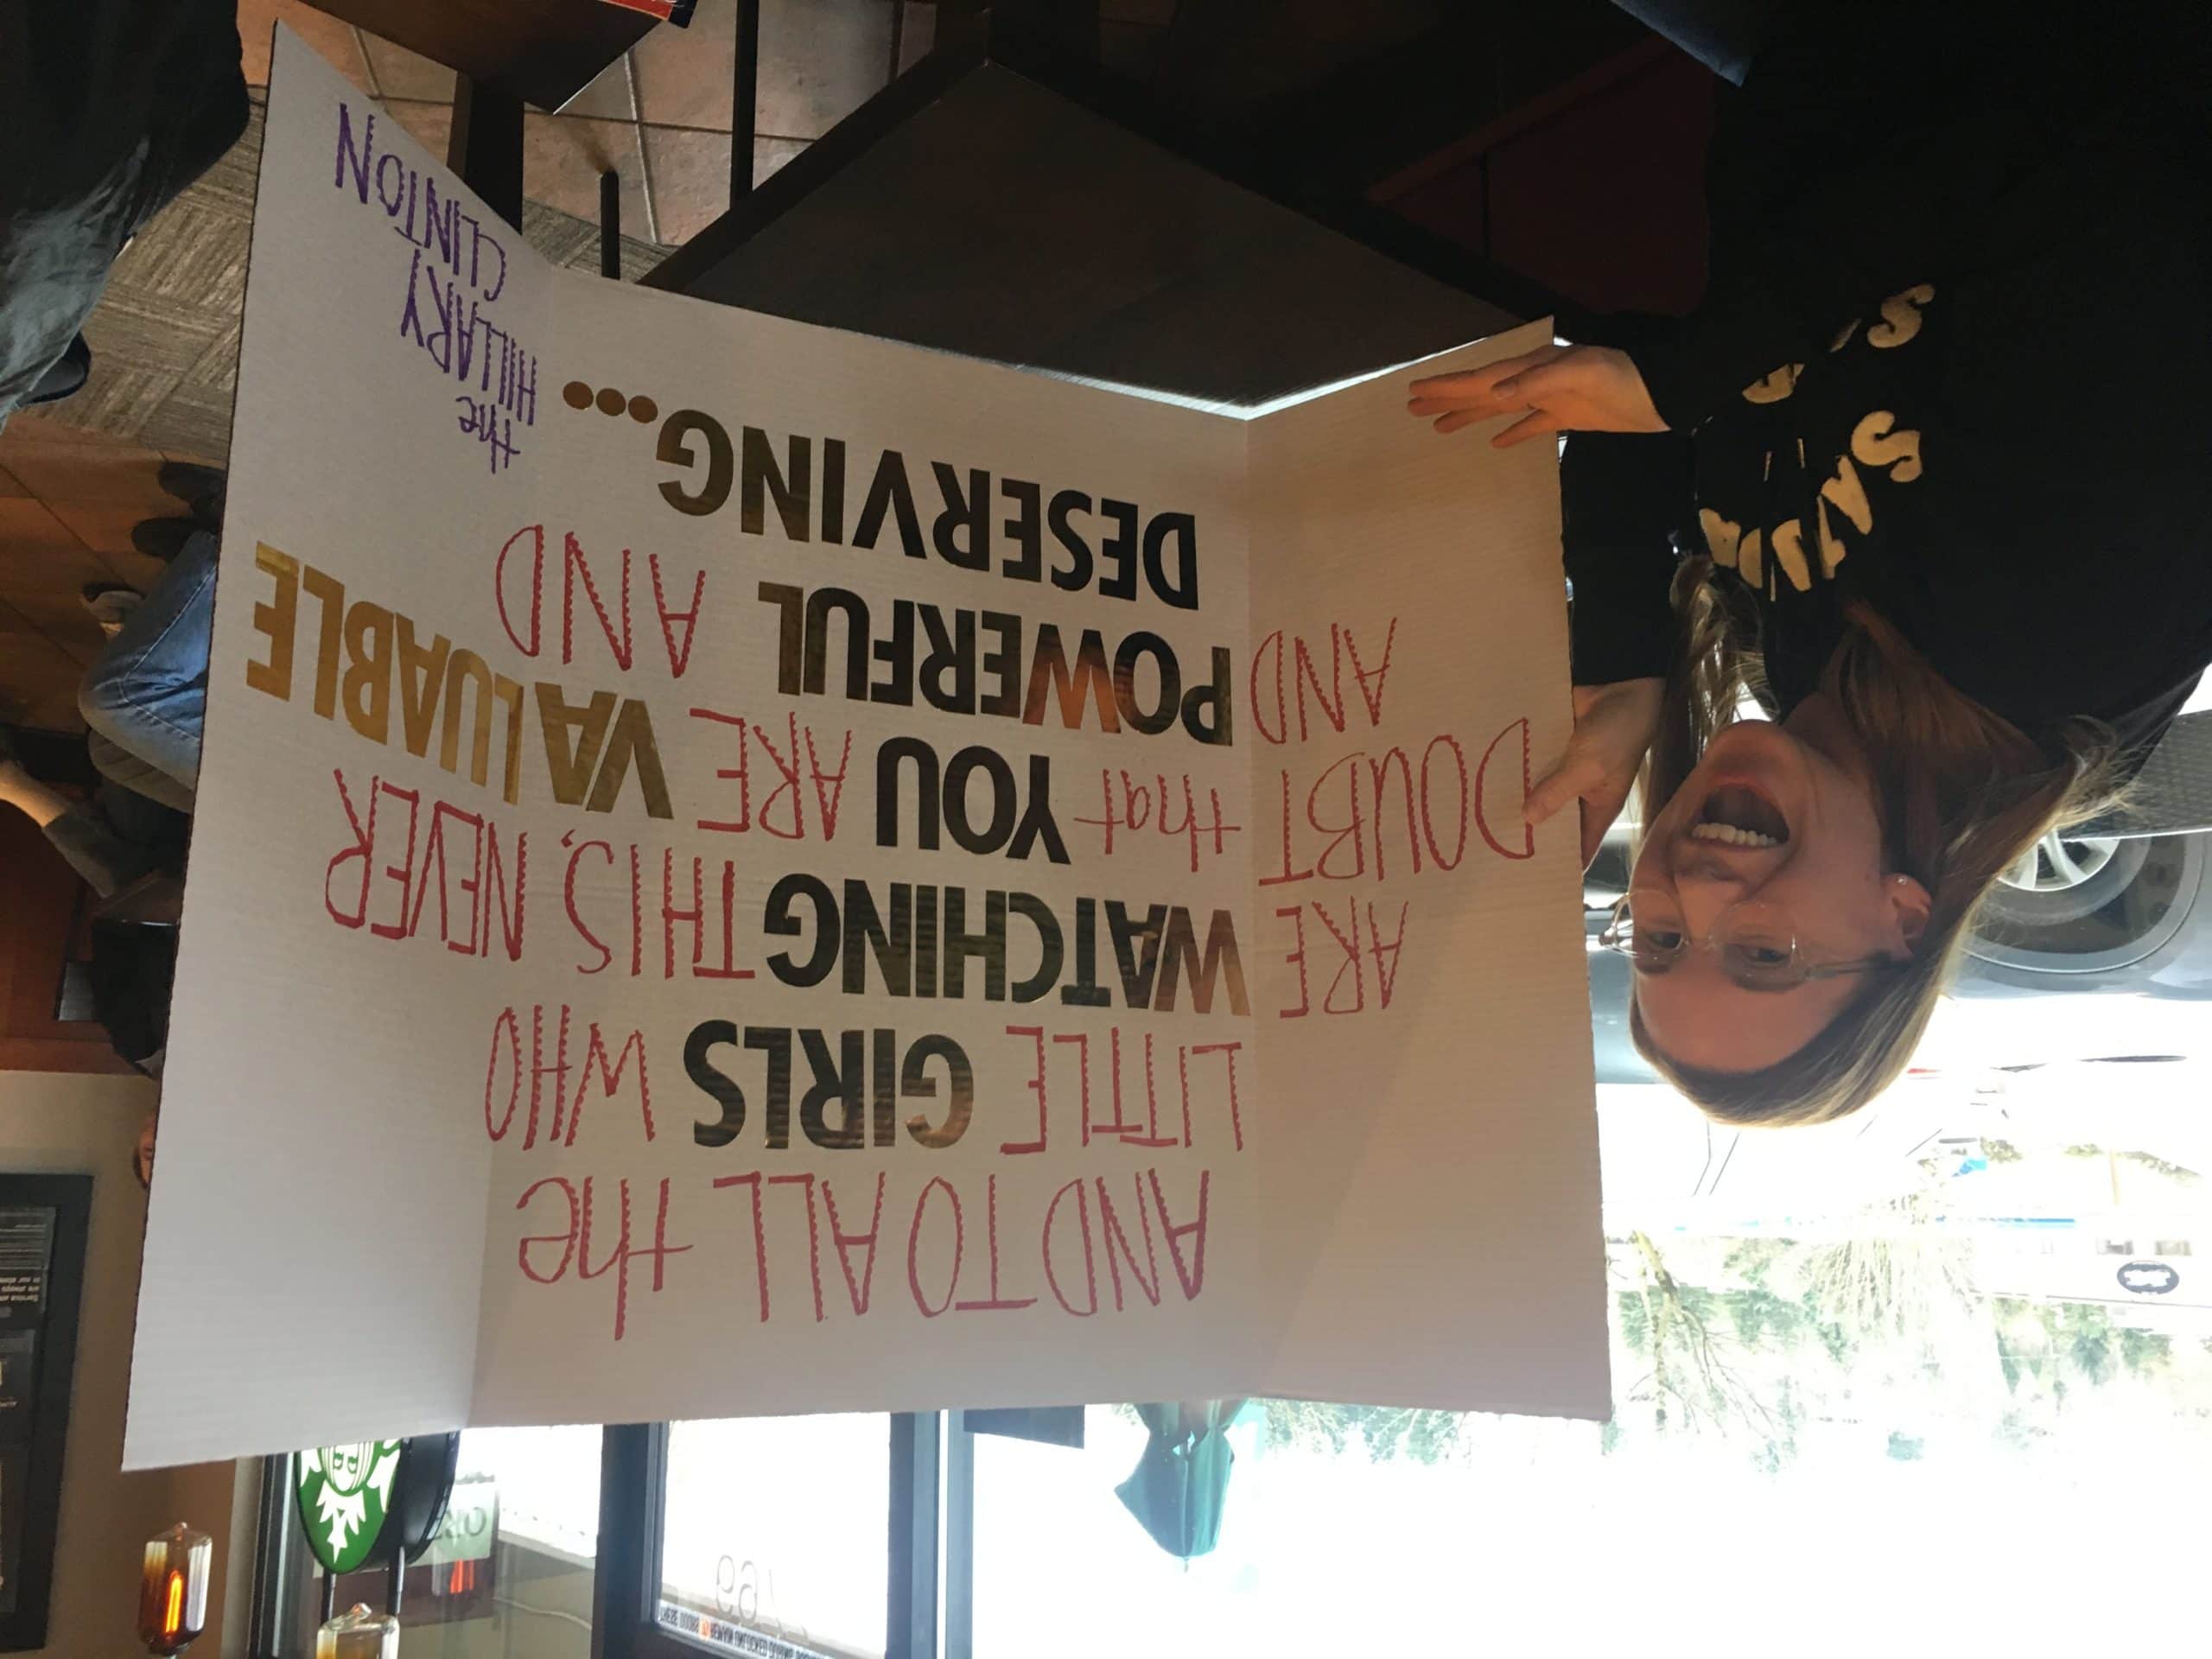 AND TO ALL the
LITTLE GIRLS WHO
ARE WATCHING THIS, NEVER
DOUBT that YOU ARE VALUABLE
AND POWERFUL AND
DESERVING...
the
HILLARY
CLINTON